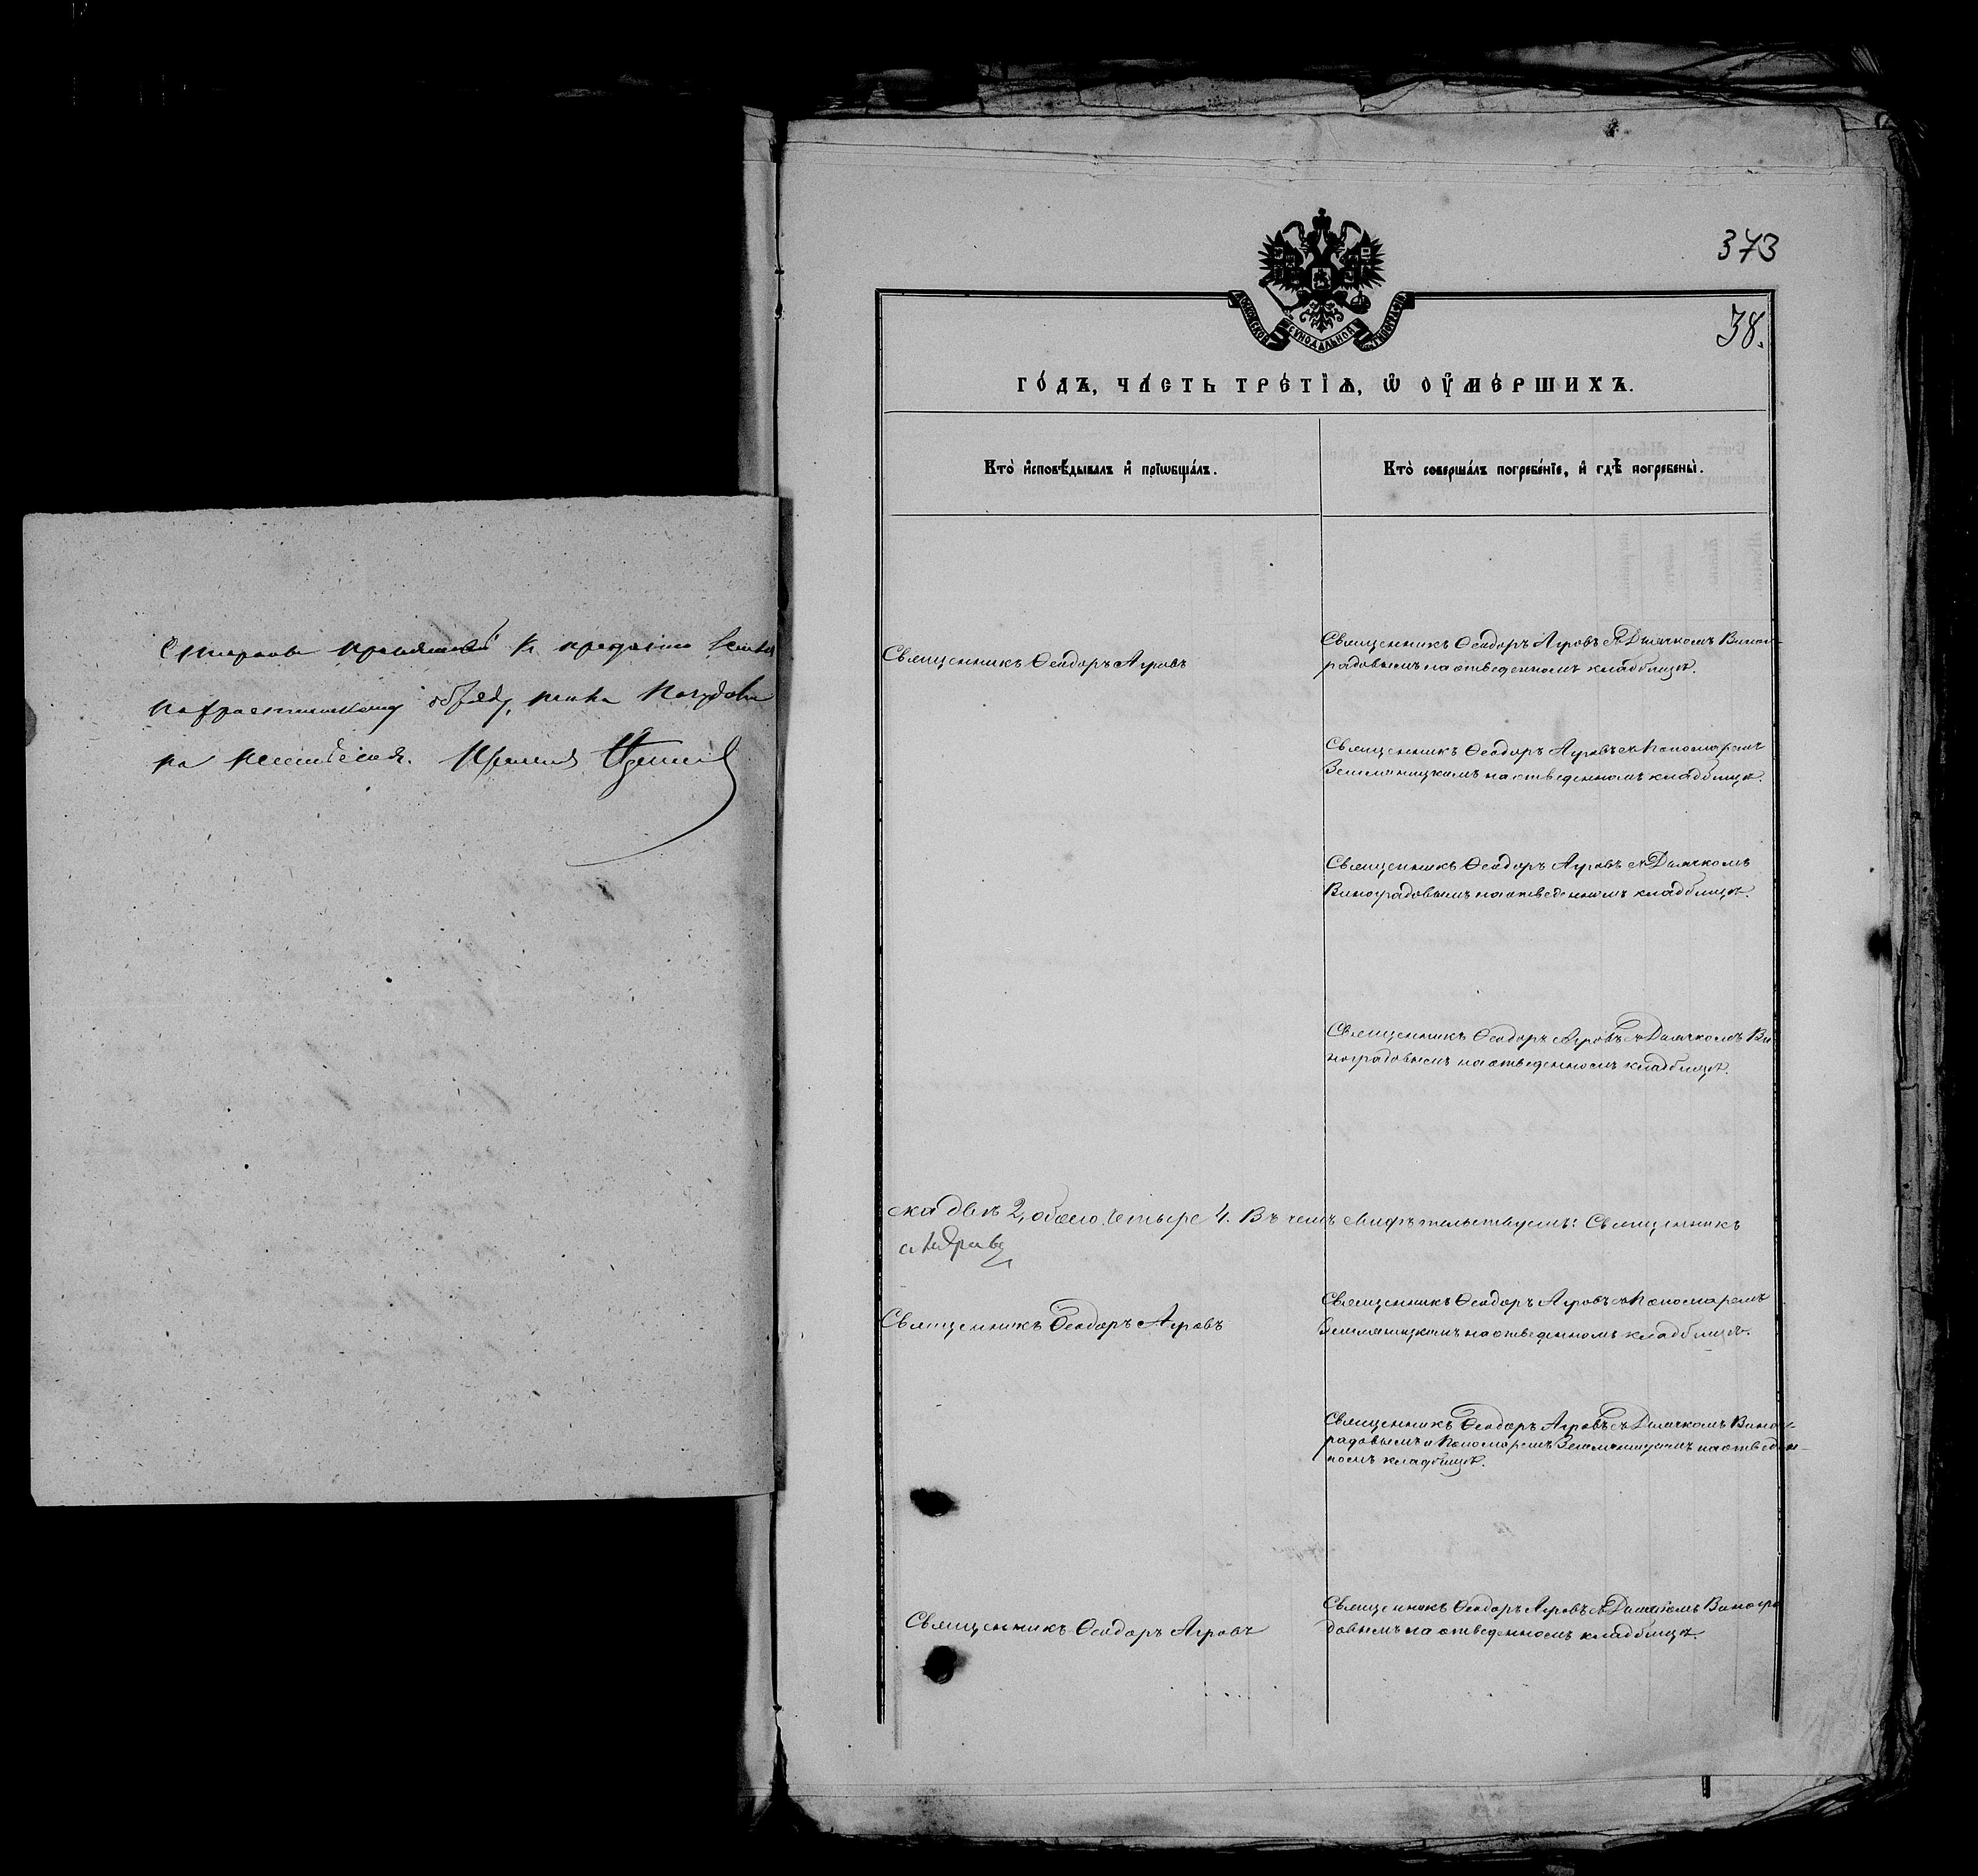 къ преданію земли
по христіанскому обряду,
373
38.
МОСКОВСКОЙ СѴНОДАЛЬНОЙ ТИПОГРАФІИ
ГО́ДЪ, ЧА́СТЬ ТРЕ́ТІѦ, Ѡ҆ ОУ҆МЕ́РШИХЪ.
Кто̀ и҆сповѣ́дывалъ и҆ прїѡбща́лъ.
Кто̀ соверша́лъ погребе́нїе, и҆ гдѣ̀ погребены̀.
Священникъ Ѳеодоръ Агровъ
Священникъ Ѳеодоръ Агровъ съ Дьячкомъ Виног-
радовымъ на отведенномъ кладбищѣ.
Священникъ Ѳеодоръ Агровъ съ Пономаремъ
Земляницкимъ на отведенномъ кладбищѣ.
Священникъ Ѳеодоръ Агровъ съ Дьячкомъ
Виноградовымъ на отведенномъ кладбищѣ.
Священникъ Ѳеодоръ Агровъ съ Дьячкомъ Ви
ноградовымъ на отведенномъ кладбищѣ.
ска двѣ 2, обоего четыре 4. Въ чемъ свидѣтельствуемъ: Священникъ
Священникъ Ѳеодоръ Агровъ
Священникъ Ѳеодоръ Агровъ съ Пономаремъ
Земляницкимъ на отведенномъ кладбищѣ.
Священникъ Ѳеодоръ Агровъ съ Дьячкомъ Виног-
радовымъ и Пономаремъ Земляницкимъ на отведен-
номъ кладбищѣ.
Священникъ Ѳеодоръ Агровъ
Священникъ Ѳеодоръ Агровъ съ Дьячкомъ Виногра
довымъ на отведенномъ кладбищѣ.